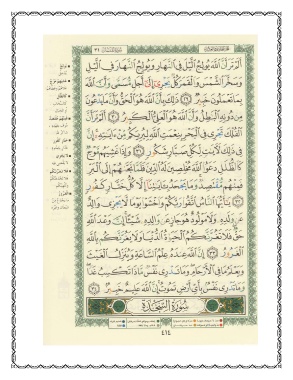 أَلَمْ تَرَ أَنَّ ٱللَّهَ يُولِجُ ٱلَّيْلَ فِى ٱلنَّهَارِ وَيُولِجُ ٱلنَّهَارَ فِى ٱلَّيْلِ
وَسَخَّرَ ٱلشَّمْسَ وَٱلْقَمَرَ كُلٌّ يَجْرِىٓ إِلَىٰٓ أَجَلٍ مُّسَمًّى وَأَنَّ ٱللَّهَ
بِمَا تَعْمَلُونَ خَبِيرٌ ٢٩ ذَٰلِكَ بِأَنَّ ٱللَّهَ هُوَ ٱلْحَقُّ وَأَنَّ مَا يَدْعُونَ
مِن دُونِهِ ٱلْبَٰطِلُ وَأَنَّ ٱللَّهَ هُوَ ٱلْعَلِىُّ ٱلْكَبِيرُ ٣٠ أَلَمْ تَرَ أَنَّ
ٱلْفُلْكَ تَجْرِى فِى ٱلْبَحْرِ بِنِعْمَتِ ٱللَّهِ لِيُرِيَكُم مِّنْ ءَايَٰتِهِۦٓ إِنَّ
فِى ذَٰلِكَ لَءَايَٰتٍ لِّكُلِّ صَبَّارٍ شَكُورٍ ٣١ وَإِذَا غَشِيَهُم مَّوْجٌ
كَٱلظُّلَلِ دَعَوُا۟ ٱللَّهَ مُخْلِصِينَ لَهُ ٱلدِّينَ فَلَمَّا نَجَّىٰهُمْ إِلَى ٱلْبَرِّ
فَمِنْهُم مُّقْتَصِدٌ وَمَا يَجْحَدُ بِـَٔايَٰتِنَآ إِلَّا كُلُّ خَتَّارٍ كَفُورٍ
٣٢ يَٰٓأَيُّهَا ٱلنَّاسُ ٱتَّقُوا۟ رَبَّكُمْ وَٱخْشَوْا۟ يَوْمًا لَّا يَجْزِى وَالِدٌ
عَن وَلَدِهِۦ وَلَا مَوْلُودٌ هُوَ جَازٍ عَن وَالِدِهِۦ شَيْـًٔا إِنَّ وَعْدَ ٱللَّهِ
حَقٌّ فَلَا تَغُرَّنَّكُمُ ٱلْحَيَوٰةُ ٱلدُّنْيَا وَلَا يَغُرَّنَّكُم بِٱللَّهِ
ٱلْغَرُورُ ٣٣ إِنَّ ٱللَّهَ عِندَهُۥ عِلْمُ ٱلسَّاعَةِ وَيُنَزِّلُ ٱلْغَيْثَ
وَيَعْلَمُ مَا فِى ٱلْأَرْحَامِ وَمَا تَدْرِى نَفْسٌ مَّاذَا تَكْسِبُ غَدًا
وَمَا تَدْرِى نَفْسٌۢ بِأَىِّ أَرْضٍ تَمُوتُ إِنَّ ٱللَّهَ عَلِيمٌ خَبِيرٌۢ ٣٤
سُورَةُ السَّجْدَةِ
٤١٤